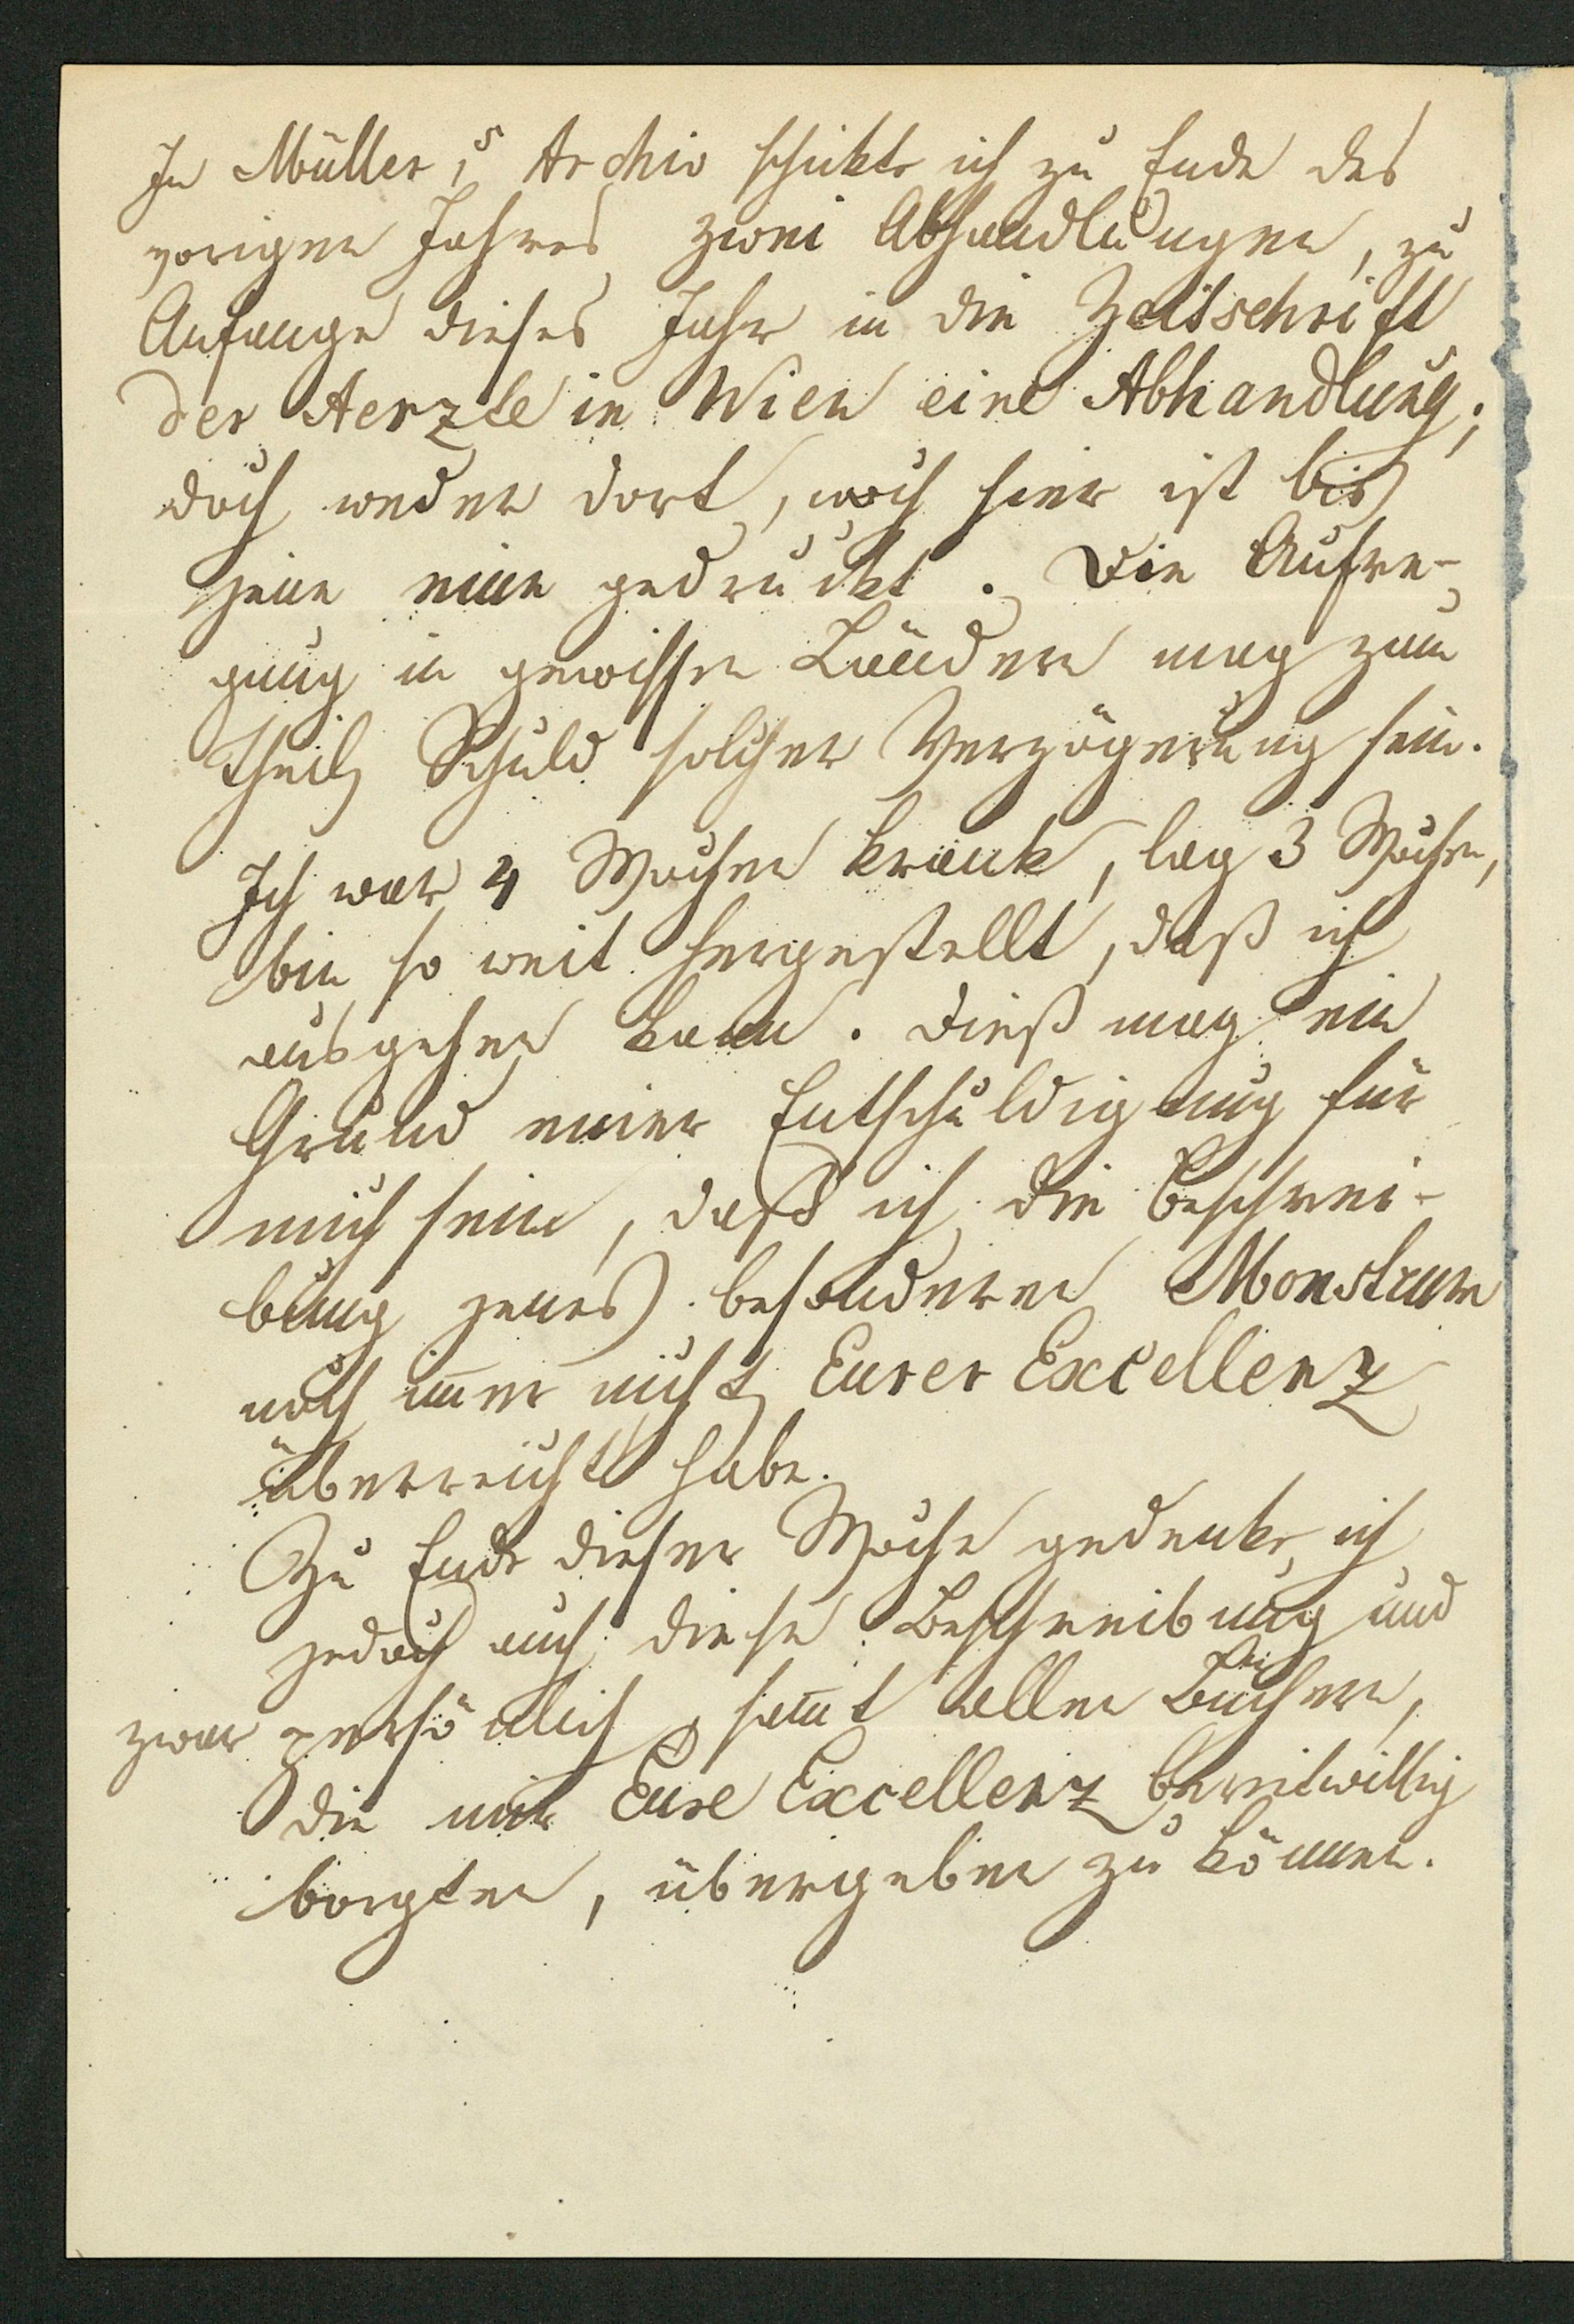 In Müller's Archiv schickte ich zu Ende des
vorigen Jahres zwei Abhandlungen, zu
Anfange dieses Jahr in die Zeitschrift
der Aerzte in Wien eine Abhandlung;
doch weder dort, noch hier ist bis
jetzt eine gedruckt. Die Aufre-
gung in gewissen Ländern mag zum
Theil Schuld solcher Verzögerung sein.
Ich war 4 Wochen krank, lag 3 Wochen,
bin so weit hergestellt, daß ich
ausgehen kann. Dieß mag ein
Grund einer Entschuldigung für
mich sein, daß ich die Beschrei-
bung jenes besonderen Monstrum
noch im̄er nicht Eurer Excellenz
überreicht habe.
Zu Ende dieser Woche gedenke ich
jedoch auch diese Beschreibung und
zwar persönlich, sam̄t allen Büchern,
die mir Eure Excellenz bereitwillig
borgten, übergeben zu können.